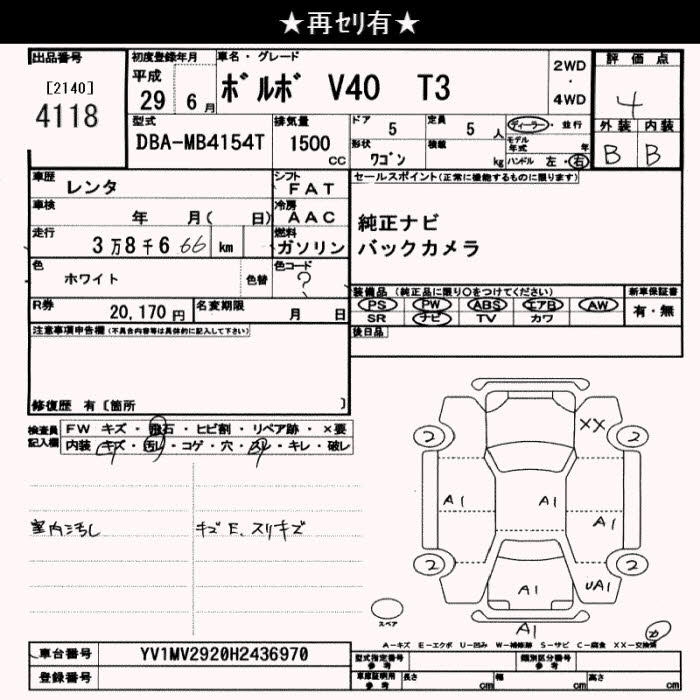 ★再セリ有★
出品番号
[2140]
4118
初度登録年月
平成
29 6月
車名・グレード
ボルボ V40 T3
2WD
・
4WD
評価点
4
外装 内装
B B
型式
DBA-MB4154T
排気量
1500
cc
ドア 5
定員 5 人
形状 ワゴン
積載 kg
ディーラー・並行
モデル年式 年
ハンドル 左・右
車歴 レンタ
シフト FAT
車検 年 月( 日)
冷房 AAC
走行 3万8千6 66 km
燃料 ガソリン
色 ホワイト 色替
色コード ?
R券 20,170円
名変期限 月 日
セールスポイント(正常に機能するものに限ります)
純正ナビ
バックカメラ
装備品 (純正品に限り○をつけてください)
PS PW ABS エアB AW
SR ナビ TV カワ
新車保証書
有・無
後日品
注意事項申告欄(不具合内容等は具体的に記入して下さい)
修復歴 有 [箇所 ]
検査員記入欄
FW キズ・飛石・ヒビ割・リペア跡・×要
内装 キズ・汚れ・コゲ・穴・スレ・キレ・破レ
室内汚し
キズE、スリキズ
2 XX 2
A1 A1 A1
2 A1 UA1 2
スペア
A1
カ
A-キズ E-エクボ U-凹み W-補修跡 S-サビ C-腐食 XX-交換済
車台番号 YV1MV2920H2436970
登録番号
型式指定番号 参考
類別区分番号 参考
車庫証明用 参考
長さ cm 幅 cm 高さ cm